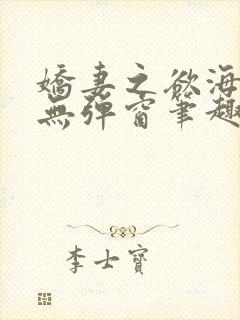 嬌妻之欲海
無彈窗筆趣
李士寶